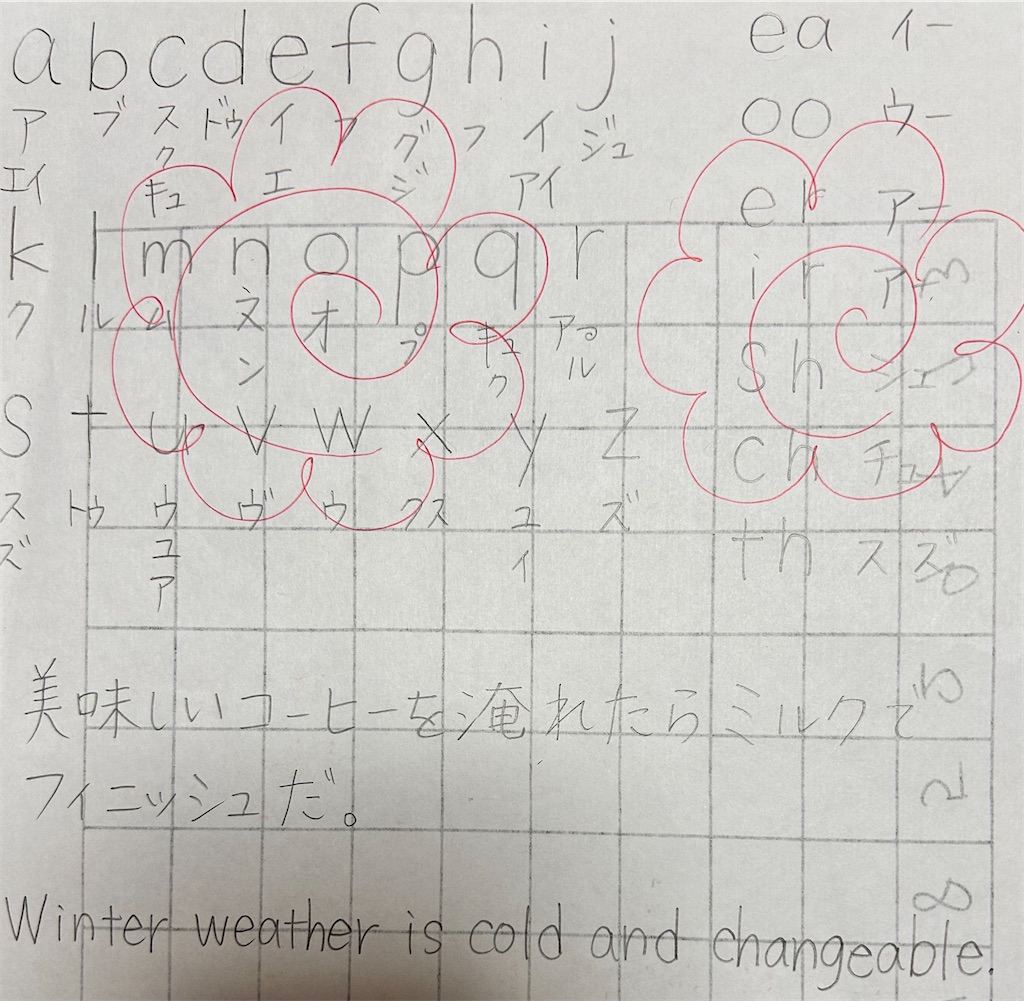 a b c d e f g h i j
ア ブ ス ドゥ イ フ グ フ イ ジュ
ク
エイ キュ エ ジ アイ
k l m n o p q r
ク ル ム ネ オ プ キュ アール
ン ク
s t u v w x y z
ス トゥ ウ ヴ ウ クス ユ ズ
ズ ユ イ
ア
ea イー
oo ウー
er アー
ir アー
sh シュ
ch チュ
th ス ズ
美味しいコーヒーを淹れたらミルクで
フィニッシュだ。
Winter weather is cold and changeable.